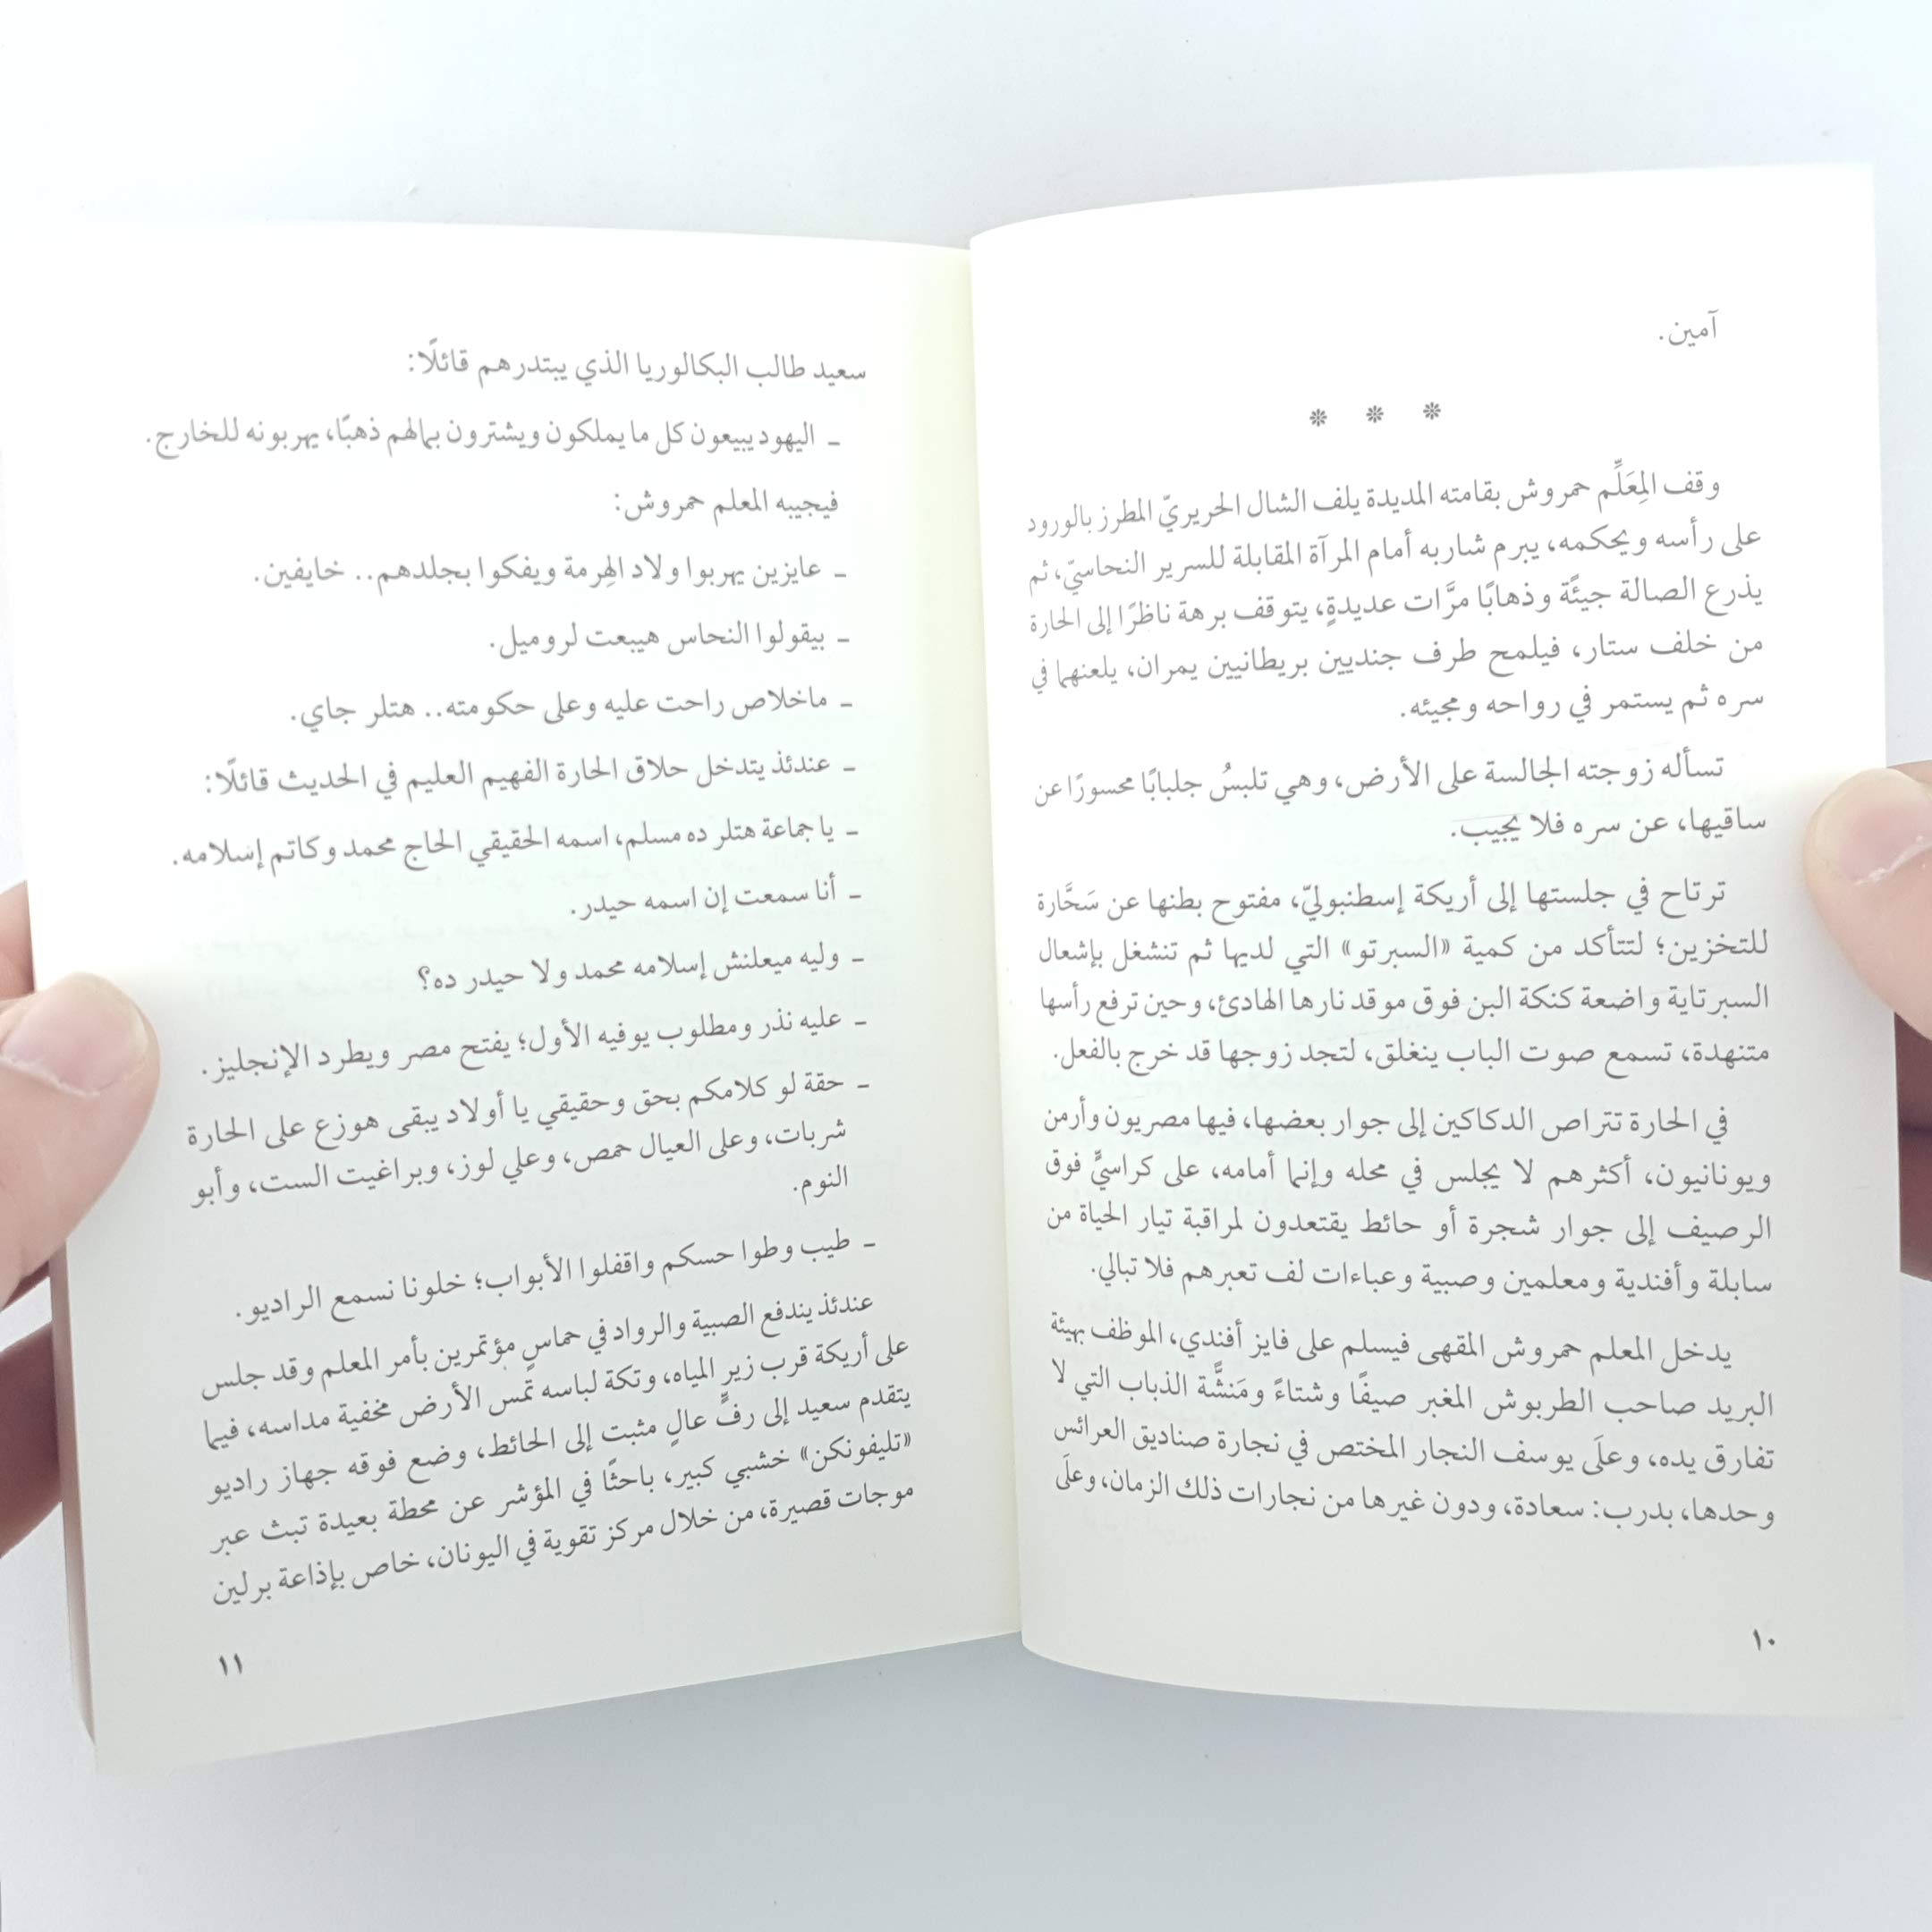 آمين.
* * *
وقف المِعَلِّم حمروش بقامته المديدة يلف الشال الحريريّ المطرز بالورود
على رأسه ويحكمه، يبرم شاربه أمام المرآة المقابلة للسرير النحاسيّ، ثم
يذرع الصالة جيئًة وذهابًا مرَّات عديدةٍ، يتوقف برهة ناظرًا إلى الحارة
من خلف ستار، فيلمح طرف جنديين بريطانيين يمران، يلعنهما في
سره ثم يستمر في رواحه ومجيئه.
تسأله زوجته الجالسة على الأرض، وهي تلبسُ جلبابًا محسورًا عن
ساقيها، عن سره فلا يجيب.
ترتاح في جلستها إلى أريكة إسطنبوليّ، مفتوح بطنها عن سَحَّارة
للتخزين؛ لتتأكد من كمية «السبرتو» التي لديها ثم تنشغل بإشعال
السبرتاية واضعة كنكة البن فوق موقد نارها الهادئ، وحين ترفع رأسها
متنهدة، تسمع صوت الباب ينغلق، لتجد زوجها قد خرج بالفعل.
في الحارة تتراص الدكاكين إلى جوار بعضها، فيها مصريون وأرمن
ويونانيون، أكثرهم لا يجلس في محله وإنما أمامه، على كراسيٍّ فوق
الرصيف إلى جوار شجرة أو حائط يقتعدون لمراقبة تيار الحياة من
سابلة وأفندية ومعلمين وصبية وعباءات لف تعبرهم فلا تبالي.
يدخل المعلم حمروش المقهى فيسلم على فايز أفندي، الموظف بهيئة
البريد صاحب الطربوش المغبر صيفًا وشتاءً ومَنشَّة الذباب التي لا
تفارق يده، وعلَى يوسف النجار المختص في نجارة صناديق العرائس
وحدها، بدرب: سعادة، ودون غيرها من نجارات ذلك الزمان، وعلَى
١٠
سعيد طالب البكالوريا الذي يبتدرهم قائلًا:
ـ اليهود يبيعون كل ما يملكون ويشترون بمالهم ذهبًا، يهربونه للخارج.
فيجيبه المعلم حمروش:
ـ عايزين يهربوا ولاد الهِرمة ويفكوا بجلدهم.. خايفين.
ـ بيقولوا النحاس هيبعت لروميل.
ـ ماخلاص راحت عليه وعلى حكومته.. هتلر جاي.
ـ عندئذ يتدخل حلاق الحارة الفهيم العليم في الحديث قائلًا:
ـ يا جماعة هتلر ده مسلم، اسمه الحقيقي الحاج محمد وكاتم إسلامه.
ـ أنا سمعت إن اسمه حيدر.
ـ وليه ميعلنش إسلامه محمد ولا حيدر ده؟
ـ عليه نذر ومطلوب يوفيه الأول؛ يفتح مصر ويطرد الإنجليز.
ـ حقة لو كلامكم بحق وحقيقي يا أولاد يبقى هوزع على الحارة
شربات، وعلى العيال حمص، وعلي لوز، وبراغيت الست، وأبو
النوم.
ـ طيب وطوا حسكم واقفلوا الأبواب؛ خلونا نسمع الراديو.
عندئذ يندفع الصبية والرواد في حماسٍ مؤتمرين بأمر المعلم وقد جلس
على أريكة قرب زير المياه، وتكة لباسه تمس الأرض مخفية مداسه، فيما
يتقدم سعيد إلى رفٍّ عالٍ مثبت إلى الحائط، وضع فوقه جهاز راديو
«تليفونكن» خشبي كبير، باحثًا في المؤشر عن محطة بعيدة تبث عبر
موجات قصيرة، من خلال مركز تقوية في اليونان، خاص بإذاعة برلين
١١